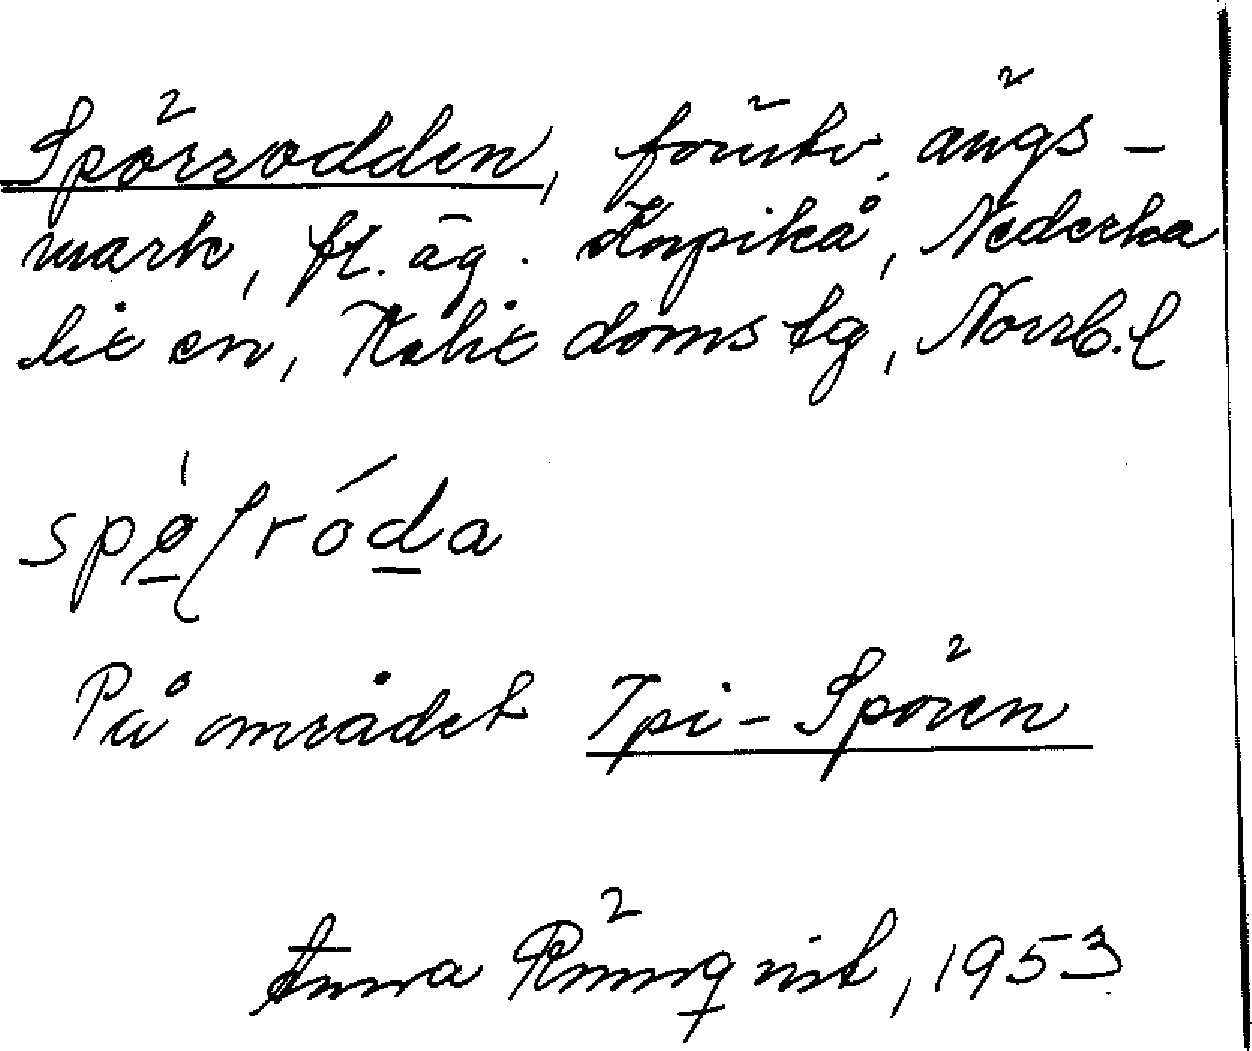 Spörrodden, förutv. ängs-
mark, fl. äg. Knpikå, Nederka
lix sn, Kalix doms tg, Norrb. l
På området Ypi-Spören
Anna Rönnqvist, 1953